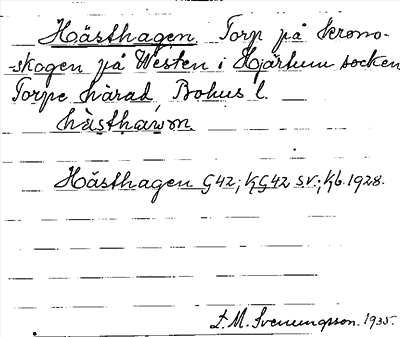 Hästhagen Torp på krono-
-skogen på Westen i Hjärtum socken
Torpe härad, Bohus l.
hàsthàwm.
Hästhagen G 42; KG 42 SV.; Kb. 1928.
L. M. Svenungsson. 1935.